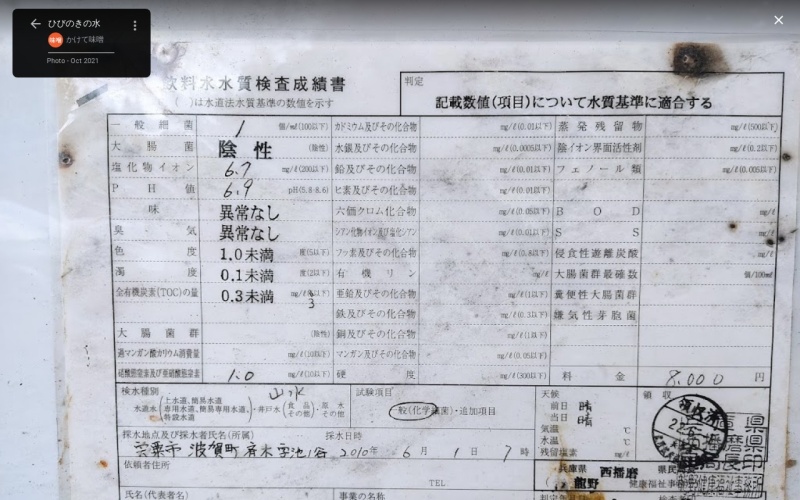 ひびのきの水
かけて味噌
Photo - Oct 2021
飲料水水質検査成績書
( )は水道法水質基準の数値を示す
判定
記載数値(項目)について水質基準に適合する
一般細菌 1 個/mℓ(100以下) カドミウム及びその化合物 mg/ℓ(0.01以下) 蒸発残留物 mg/ℓ(500以下)
大腸菌 陰性 (陰性) 水銀及びその化合物 mg/ℓ(0.0005以下) 陰イオン界面活性剤 mg/ℓ(0.2以下)
塩化物イオン 6.7 mg/ℓ(200以下) 鉛及びその化合物 mg/ℓ(0.01以下) フェノール類 mg/ℓ(0.005以下)
PH値 6.9 pH(5.8-8.6) ヒ素及びその化合物 mg/ℓ(0.01以下)
味 異常なし 六価クロム化合物 mg/ℓ(0.05以下) BOD mg/ℓ
臭気 異常なし シアン化物イオン及び塩化シアン mg/ℓ(0.01以下) SS mg/ℓ
色度 1.0未満 度(5以下) フッ素及びその化合物 mg/ℓ(0.8以下) 侵食性遊離炭酸 mg/ℓ
濁度 0.1未満 度(2以下) 有機リン mg/ℓ 大腸菌群最確数 個/100mℓ
全有機炭素(TOC)の量 0.3未満 mg/ℓ 3 以下) 亜鉛及びその化合物 mg/ℓ(1以下) 糞便性大腸菌群
鉄及びその化合物 mg/ℓ(0.3以下) 嫌気性芽胞菌
大腸菌群 (陰性) 銅及びその化合物 mg/ℓ(1以下)
過マンガン酸カリウム消費量 mg/ℓ(10以下) マンガン及びその化合物 mg/ℓ(0.05以下)
硝酸態窒素及び亜硝酸態窒素 1.0 mg/ℓ(10以下) 硬度 mg/ℓ(300以下) 料金 8,000 円
検水種別 山水 試験項目 天候 領収
水道水(上水道、簡易水道 専用水道、簡易専用水道、 特設水道)・井戸水(食品 その他)・原水 その他 一般(化学・細菌)・追加項目 前日 晴
当日 晴
気温 ℃
水温 ℃
残留塩素 mg/ℓ
採水地点及び採水者氏名(所属) 採水日時
宍粟市 波賀町 2010年 6月 1日 7時
依頼者住所
TEL
兵庫県 西播磨 県民
龍野 健康福祉事務所
氏名(名称) 事業の名称